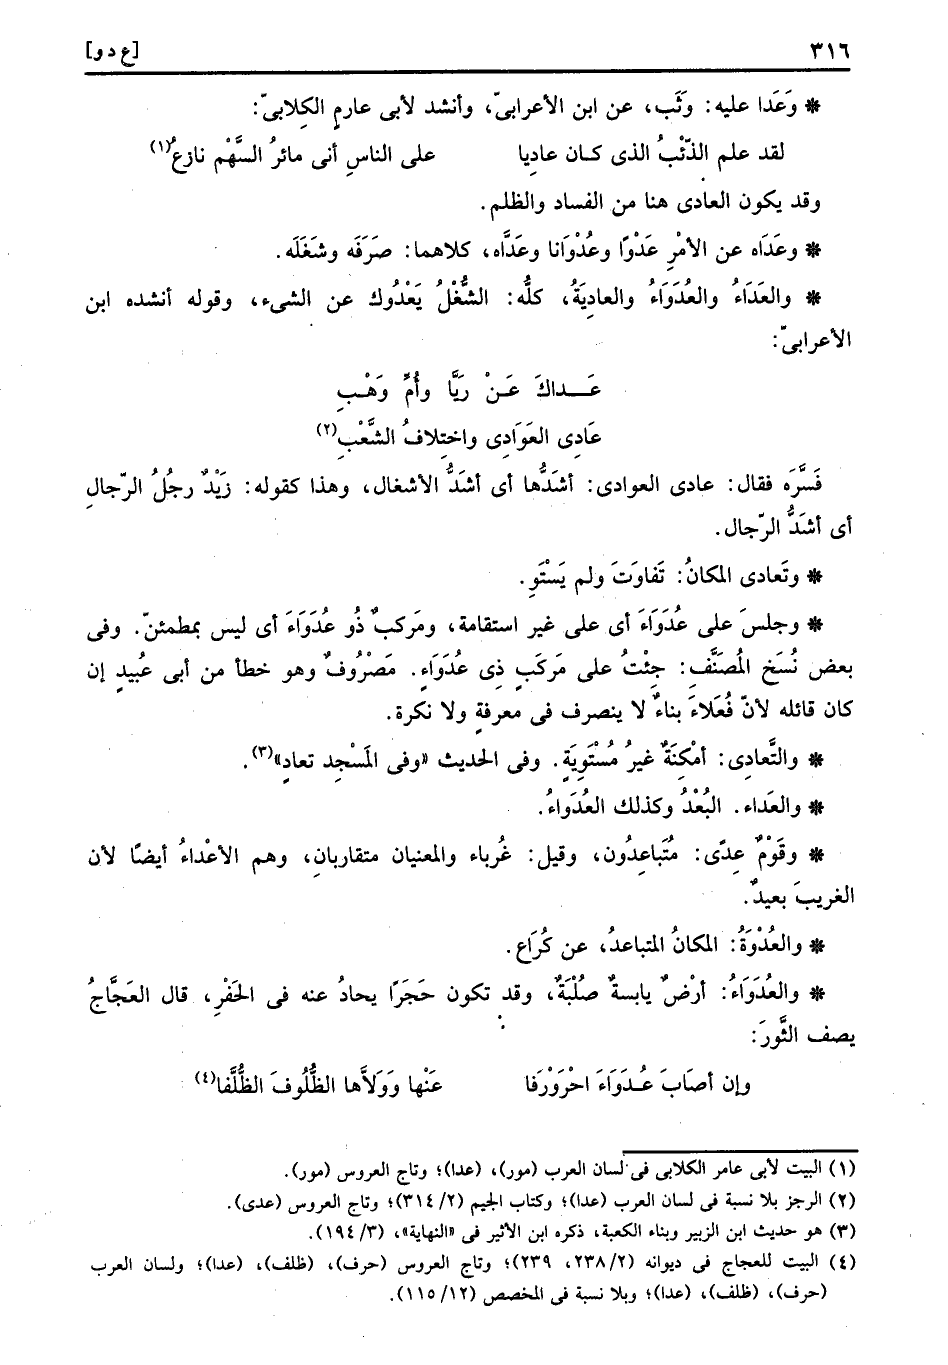 ٣١٦ [ع د و]
* وَعَدا عليه: وَثَب، عن ابن الأعرابىّ، وأنشد لأبى عارمٍ الكِلابىّ:
لقد علم الذّئْبُ الذى كان عادِيا على الناسِ أنى مائرُ السَّهْم نازعُ(١)
وقد يكون العادى هنا من الفساد والظلم.
* وعَدَاه عن الأمْرِ عَدْوًا وعُدْوَانا وعَدَّاه، كلاهما: صَرَفَه وشَغَلَه.
* والعَدَاءُ والعُدَوَاءُ والعادِيَةُ، كلُّه: الشُّغْلُ يَعْدُوك عن الشىء، وقوله أنشده ابن
الأعرابىّ:
عَـــداكَ عَـنْ رَيَّا وأُمِّ وَهْـبِ
عَادِى العَوَادِى واختِلافُ الشَّعْبِ(٢)
فَسَّرَه فقال: عادى العوادى: أشَدُّها أى أشَدُّ الأشغال، وهذا كقوله: زَيْدٌ رجلُ الرّجالِ
أى أشَدُّ الرّجال.
* وتَعادى المكانُ: تَفاوَتَ ولم يَسْتَوِ.
* وجلسَ على عُدَوَاءَ أى على غير استقامة، ومَركبٌ ذُو عُدَوَاءَ أى ليس بمطمئنّ. وفى
بعض نُسَخ المُصَنَّفِ: جِئْتُ على مَركَبٍ ذِى عُدَوَاءٍ. مَصْرُوفٌ وهو خطأ من أبى عُبيدٍ إن
كان قائله لأنّ فُعَلاءَ بناءٌ لا ينصرف فى معرفةٍ ولا نكرة.
* والتَّعادِى: أمْكِنَةٌ غيرُ مُسْتَوِيَةٍ. وفى الحديث «وفى المَسْجِد تعادٍ»(٣).
* والعَداء. البُعْدُ وكذلك العُدَواءُ.
* وقَوْمٌ عِدًى: مُتَباعِدُون، وقيل: غُرباء والمعنيان متقاربانِ، وهم الأعْداءُ أيضًا لأن
الغريبَ بعيدٌ.
* والعُدْوَةُ: المكانُ المتباعدُ، عن كُرَاعٍ.
* والعُدَوَاءُ: أرْضٌ يابسةٌ صُلْبَةٌ، وقد تكون حَجَرًا يحادُ عنه فى الحَفْرِ، قال العَجَّاجُ
يصف الثَّورَ:
وإن أصَابَ عُـدَوَاءَ احْرَوْرَفَا عَنْها وَوَلاَّها الظُّلُوفَ الظُّلَّفا(٤)
(١) البيت لأبى عامر الكلابى فى لسان العرب (مور)، (عدا)؛ وتاج العروس (مور).
(٢) الرجز بلا نسبة فى لسان العرب (عدا)؛ وكتاب الجيم (٢/ ٣١٤)؛ وتاج العروس (عدى).
(٣) هو حديث ابن الزبير وبناء الكعبة، ذكره ابن الأثير فى «النهاية»، (٣/ ١٩٤).
(٤) البيت للعجاج فى ديوانه (٢/ ٢٣٨، ٢٣٩)؛ وتاج العروس (حرف)، (ظلف)، (عدا)؛ ولسان العرب
(حرف)، (ظلف)، (عدا)؛ وبلا نسبة فى المخصص (١٢/ ١١٥).